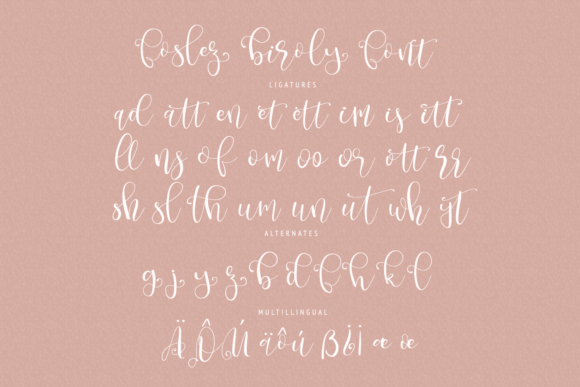 foslez biroly font
LIGATURES
ad att en et ett im is itt
ll ns of om oo or ott rr
sh sl th um un ut wh yt
ALTERNATES
g j y z b d f h k l
MULTILLINGUAL
Ä Ô Ú ä ô ú ß æ œ